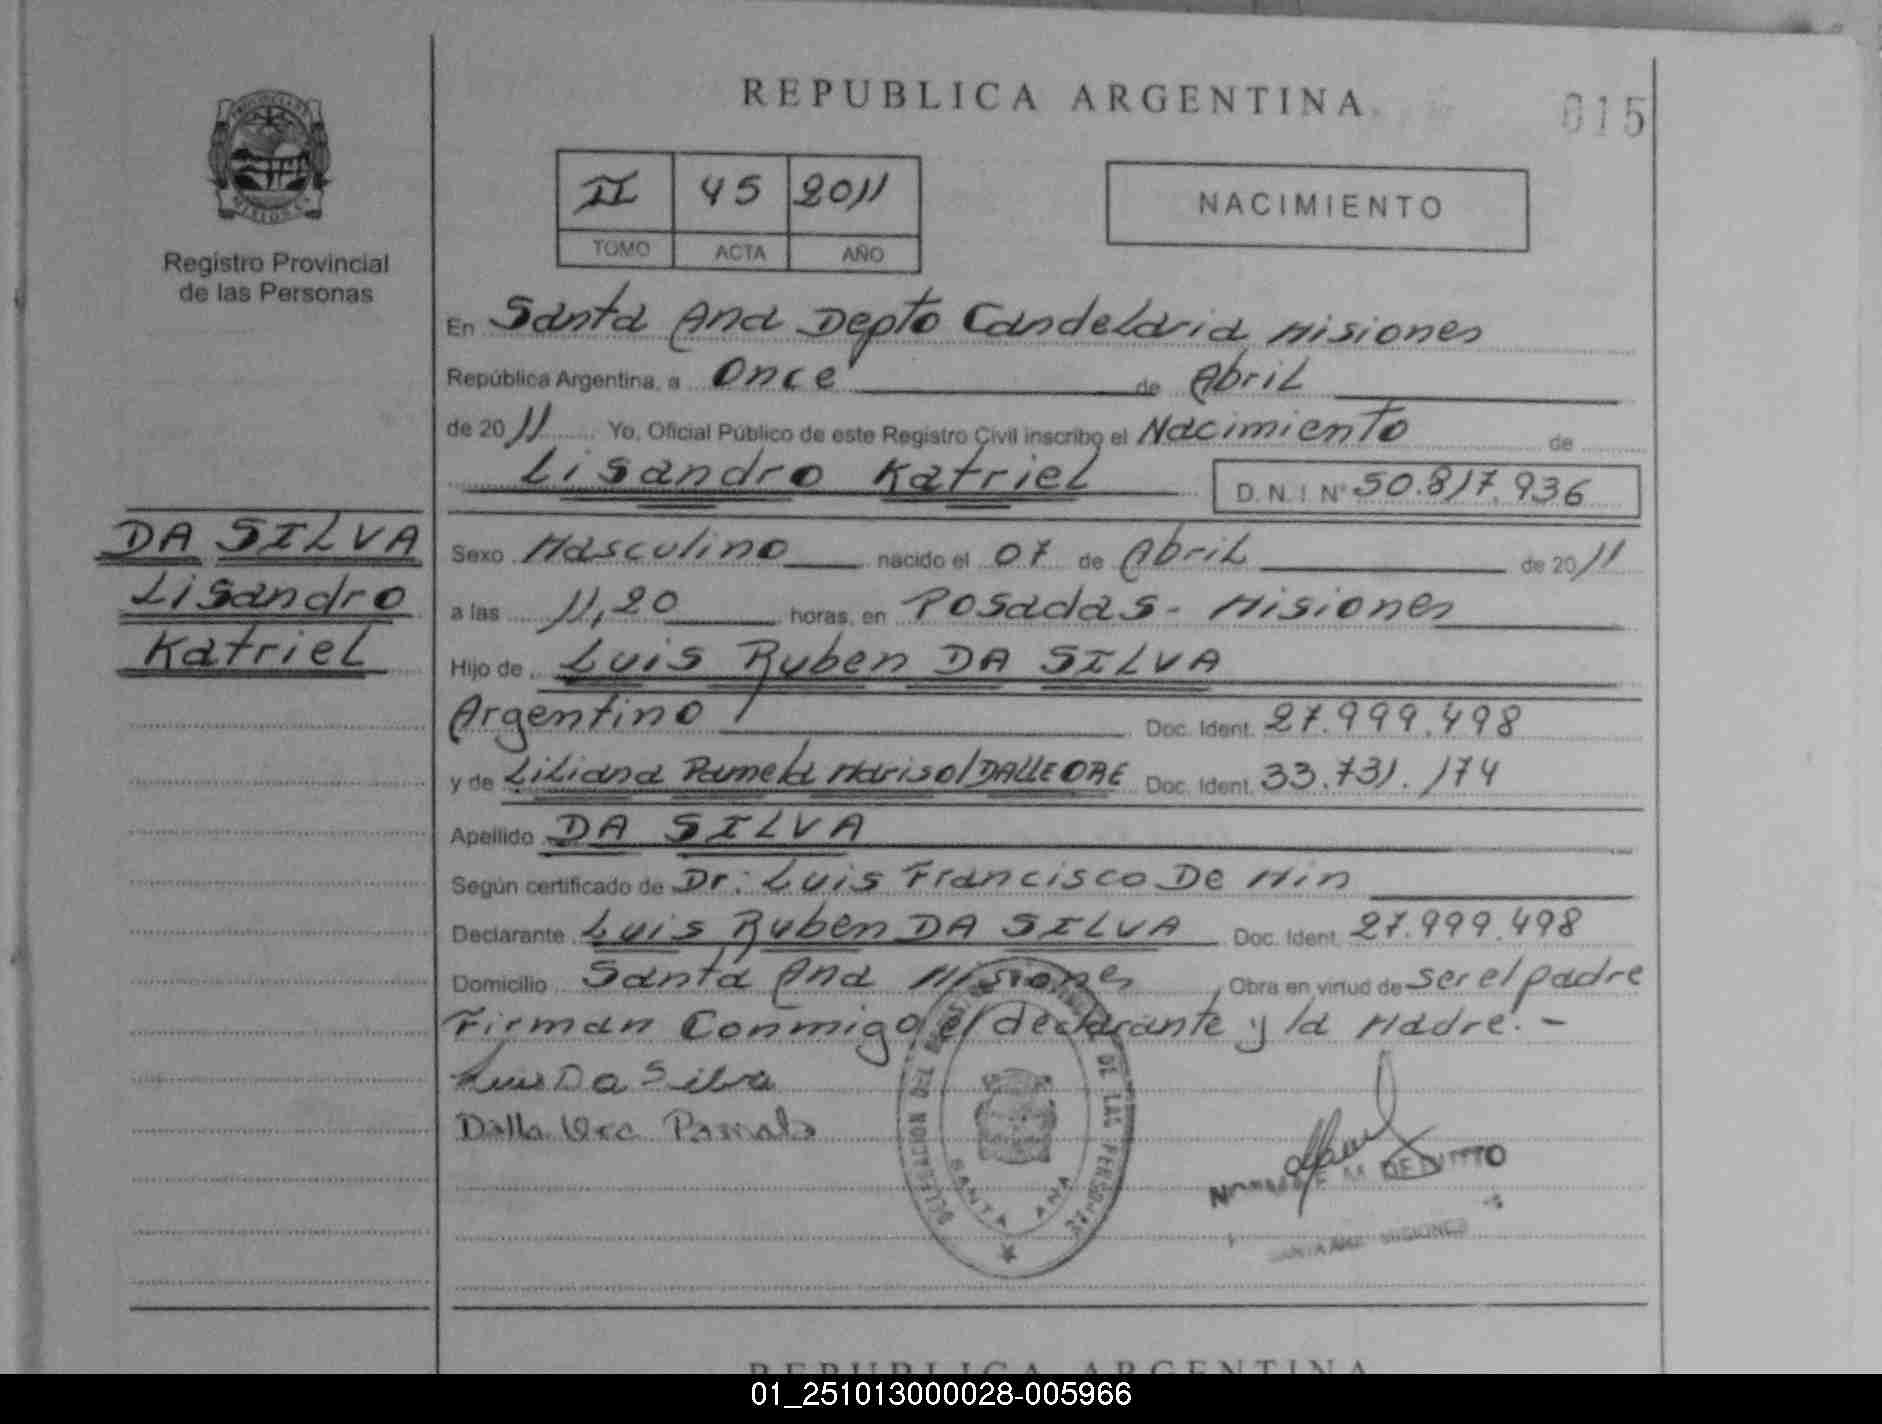 REPUBLICA ARGENTINA
015
II 45 2011
TOMO ACTA AÑO
NACIMIENTO
Registro Provincial
de las Personas
En Santa Ana Depto Candelaria Misiones
República Argentina, a Once de Abril
de 2011 Yo, Oficial Público de este Registro Civil inscribo el Nacimiento de
Lisandro Katriel D.N.I. N° 50.817.936
DA SILVA
Lisandro
Katriel
Sexo Masculino nacido el 07 de Abril de 2011
a las 11,20 horas, en Posadas - Misiones
Hijo de Luis Ruben DA SILVA
Argentino Doc. Ident. 27.999.498
y de Liliana Pamela Marisol DALLE ORE Doc. Ident. 33.731.174
Apellido DA SILVA
Según certificado de Dr: Luis Francisco De Min
Declarante Luis Ruben DA SILVA Doc. Ident. 27.999.498
Domicilio Santa Ana Misiones, Obra en virtud de ser el padre
Firman Conmigo el declarante y la Madre. -
Luis Da Silva
Dalla
DELEGACION DEL DE LAS PERSONAS
SANTA ANA
SANTA ANA MISIONES
REPUBLICA ARGENTINA
01_251013000028-005966